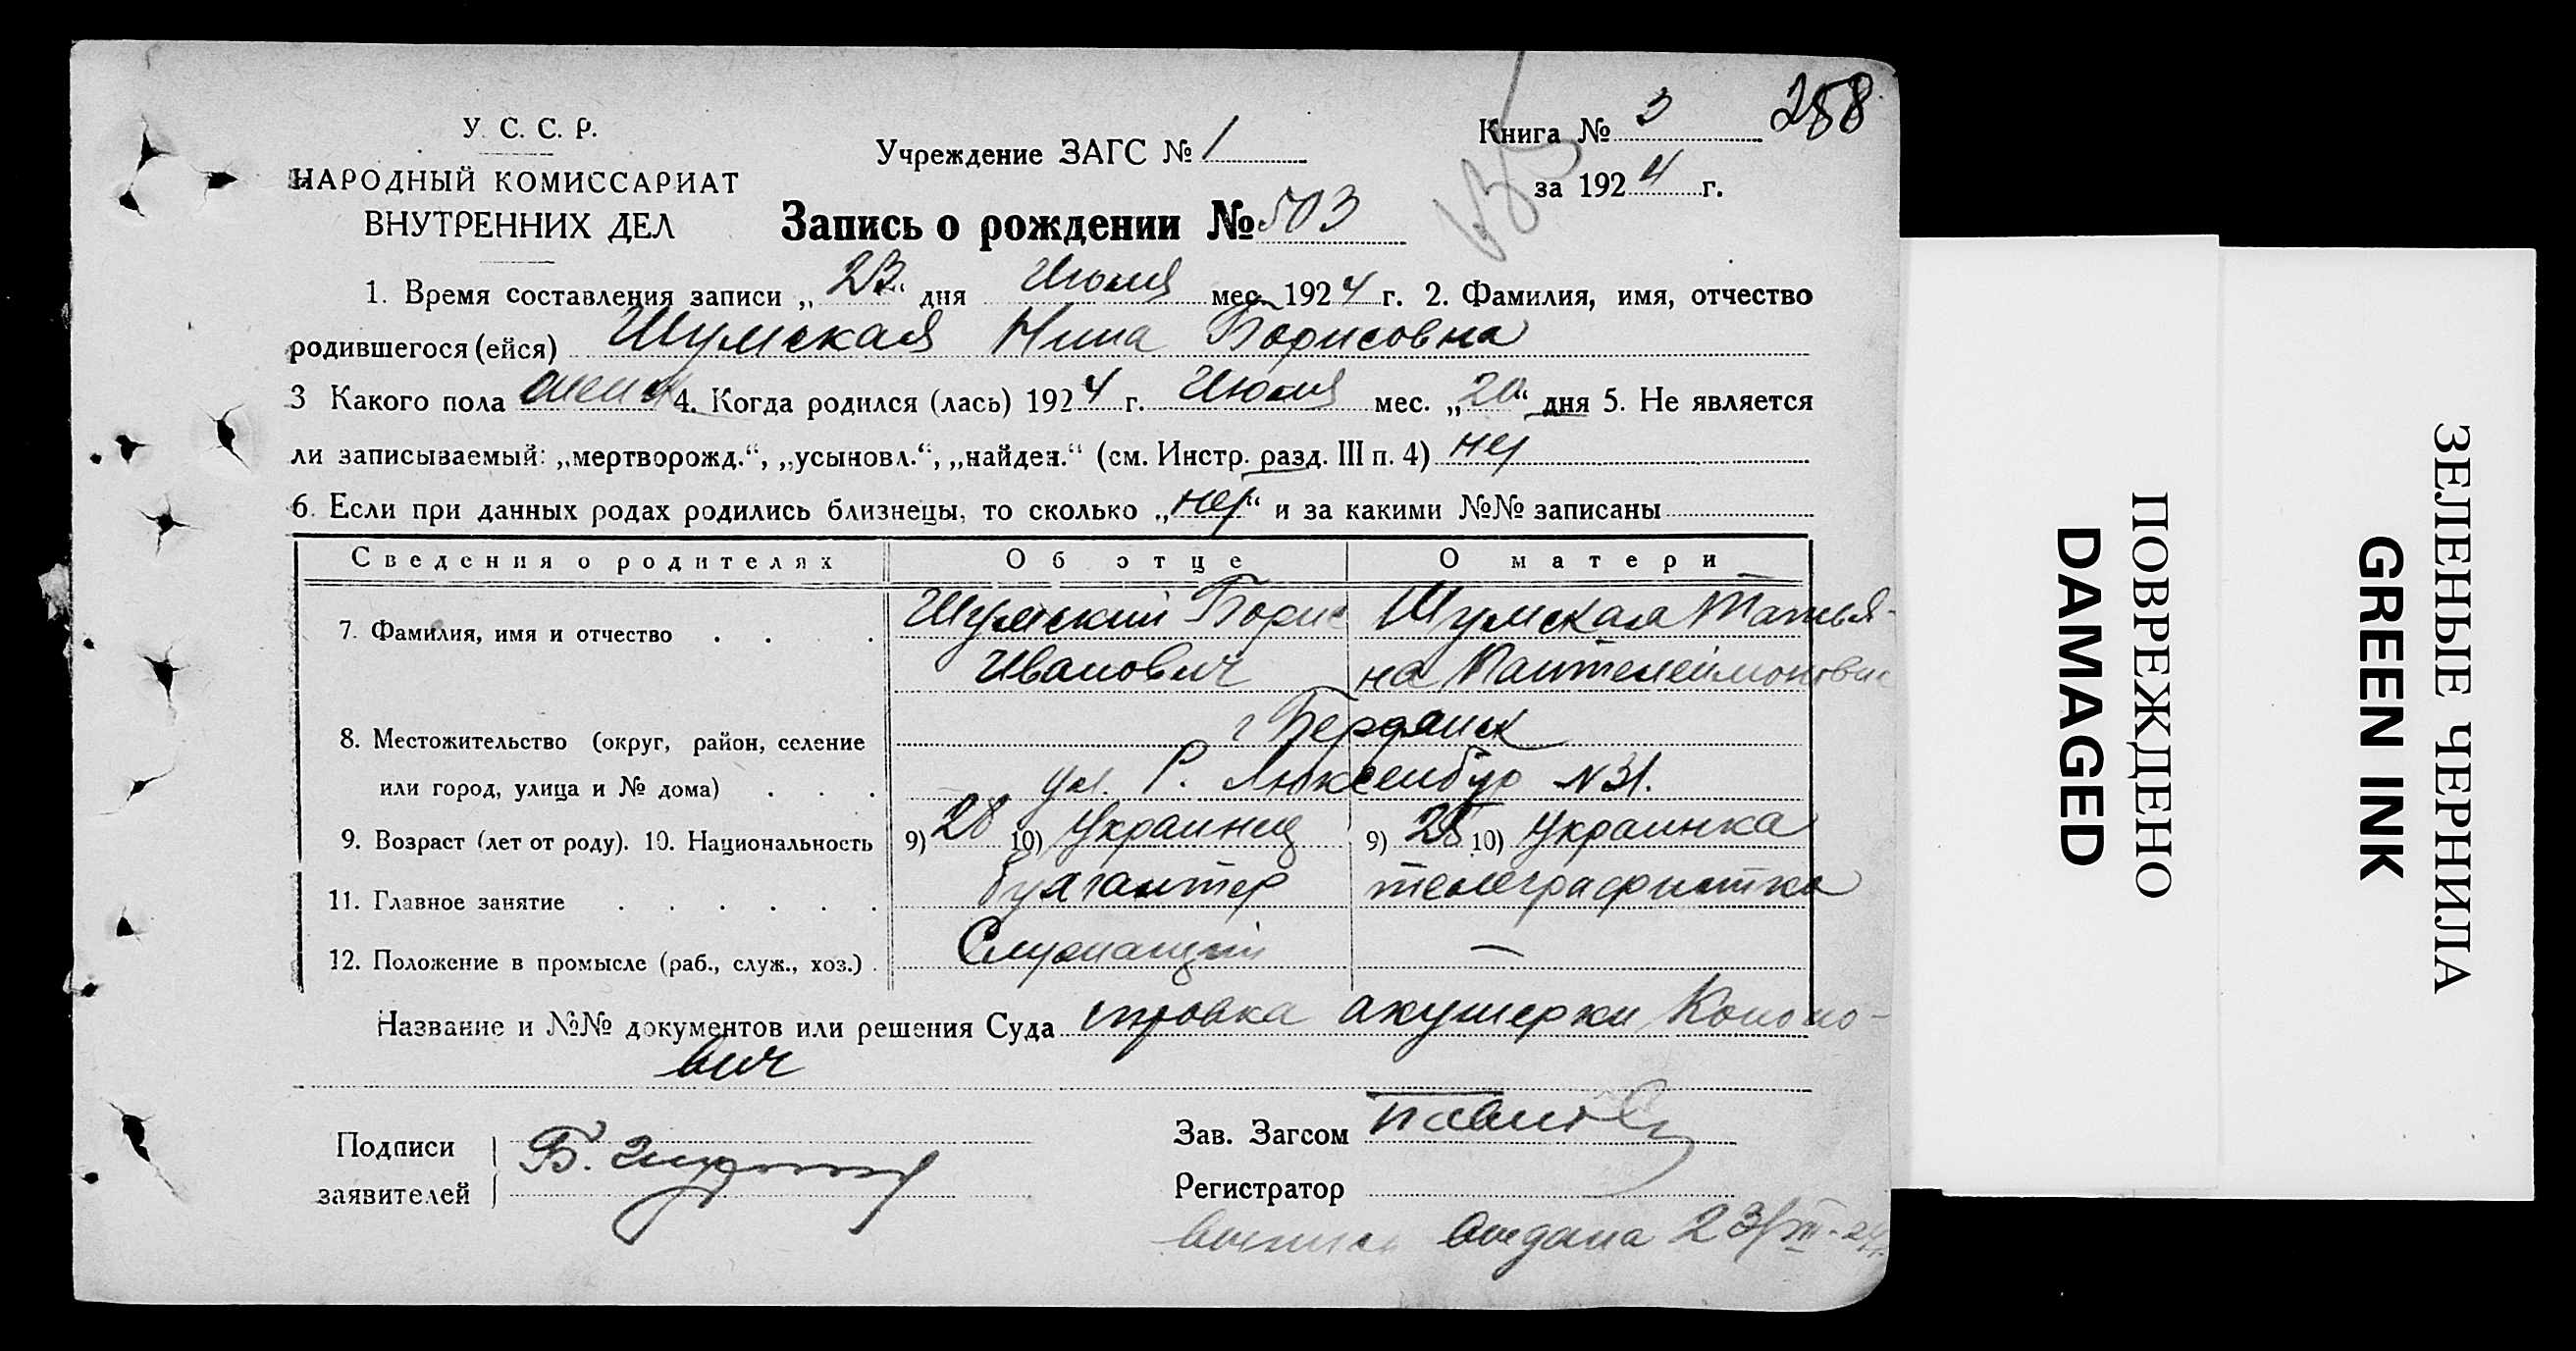 258
У. С. С. Р.
НАРОДНЫЙ КОМИССАРИАТ
ВНУТРЕННИХ ДЕЛ
Учреждение ЗАГС № 1
Книга № 3
за 1924 г.
Запись о рождении № 503
1. Время составления записи „23“ дня Июля мес. 1924 г. 2. Фамилия, имя, отчество
родившегося (ейся) Шумская Нина Борисовна
3 Какого пола женск 4. Когда родился (лась) 1924 г. Июля мес. „20“ дня 5. Не является
ли записываемый: „мертворожд.“, „усыновл.“, „найден.“ (см. Инстр. разд. III п. 4) нет
6. Если при данных родах родились близнецы, то сколько „нет“ и за какими №№ записаны
Сведения о родителях Об отце О матери
7. Фамилия, имя и отчество Шумский Борис Шумская Татья-
Иванович на Пантелеймоновна
8. Местожительство (округ, район, селение г Бердянск
или город, улица и № дома) ул. Р. Люксембур N 31.
9. Возраст (лет от роду). 10. Национальность 9) 28 10) Украинец 9) 28 10) Украинка
11. Главное занятие бухгалтер телеграфистка
12. Положение в промысле (раб., служ., хоз.) Служащий —
Название и №№ документов или решения Суда справка акушерки Кононо-
вич
Подписи
заявителей
Б.
Зав. Загсом
Регистратор
выпись выдана 23/
ПОВРЕЖДЕНО
DAMAGED
ЗЕЛЕНЫЕ ЧЕРНИЛА
GREEN INK